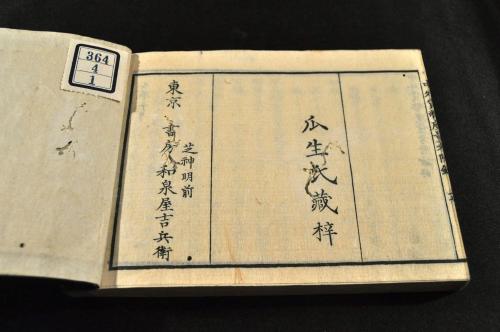 瓜生氏藏梓
芝神明前
東京 書房 和泉屋吉兵衛
364
4
1